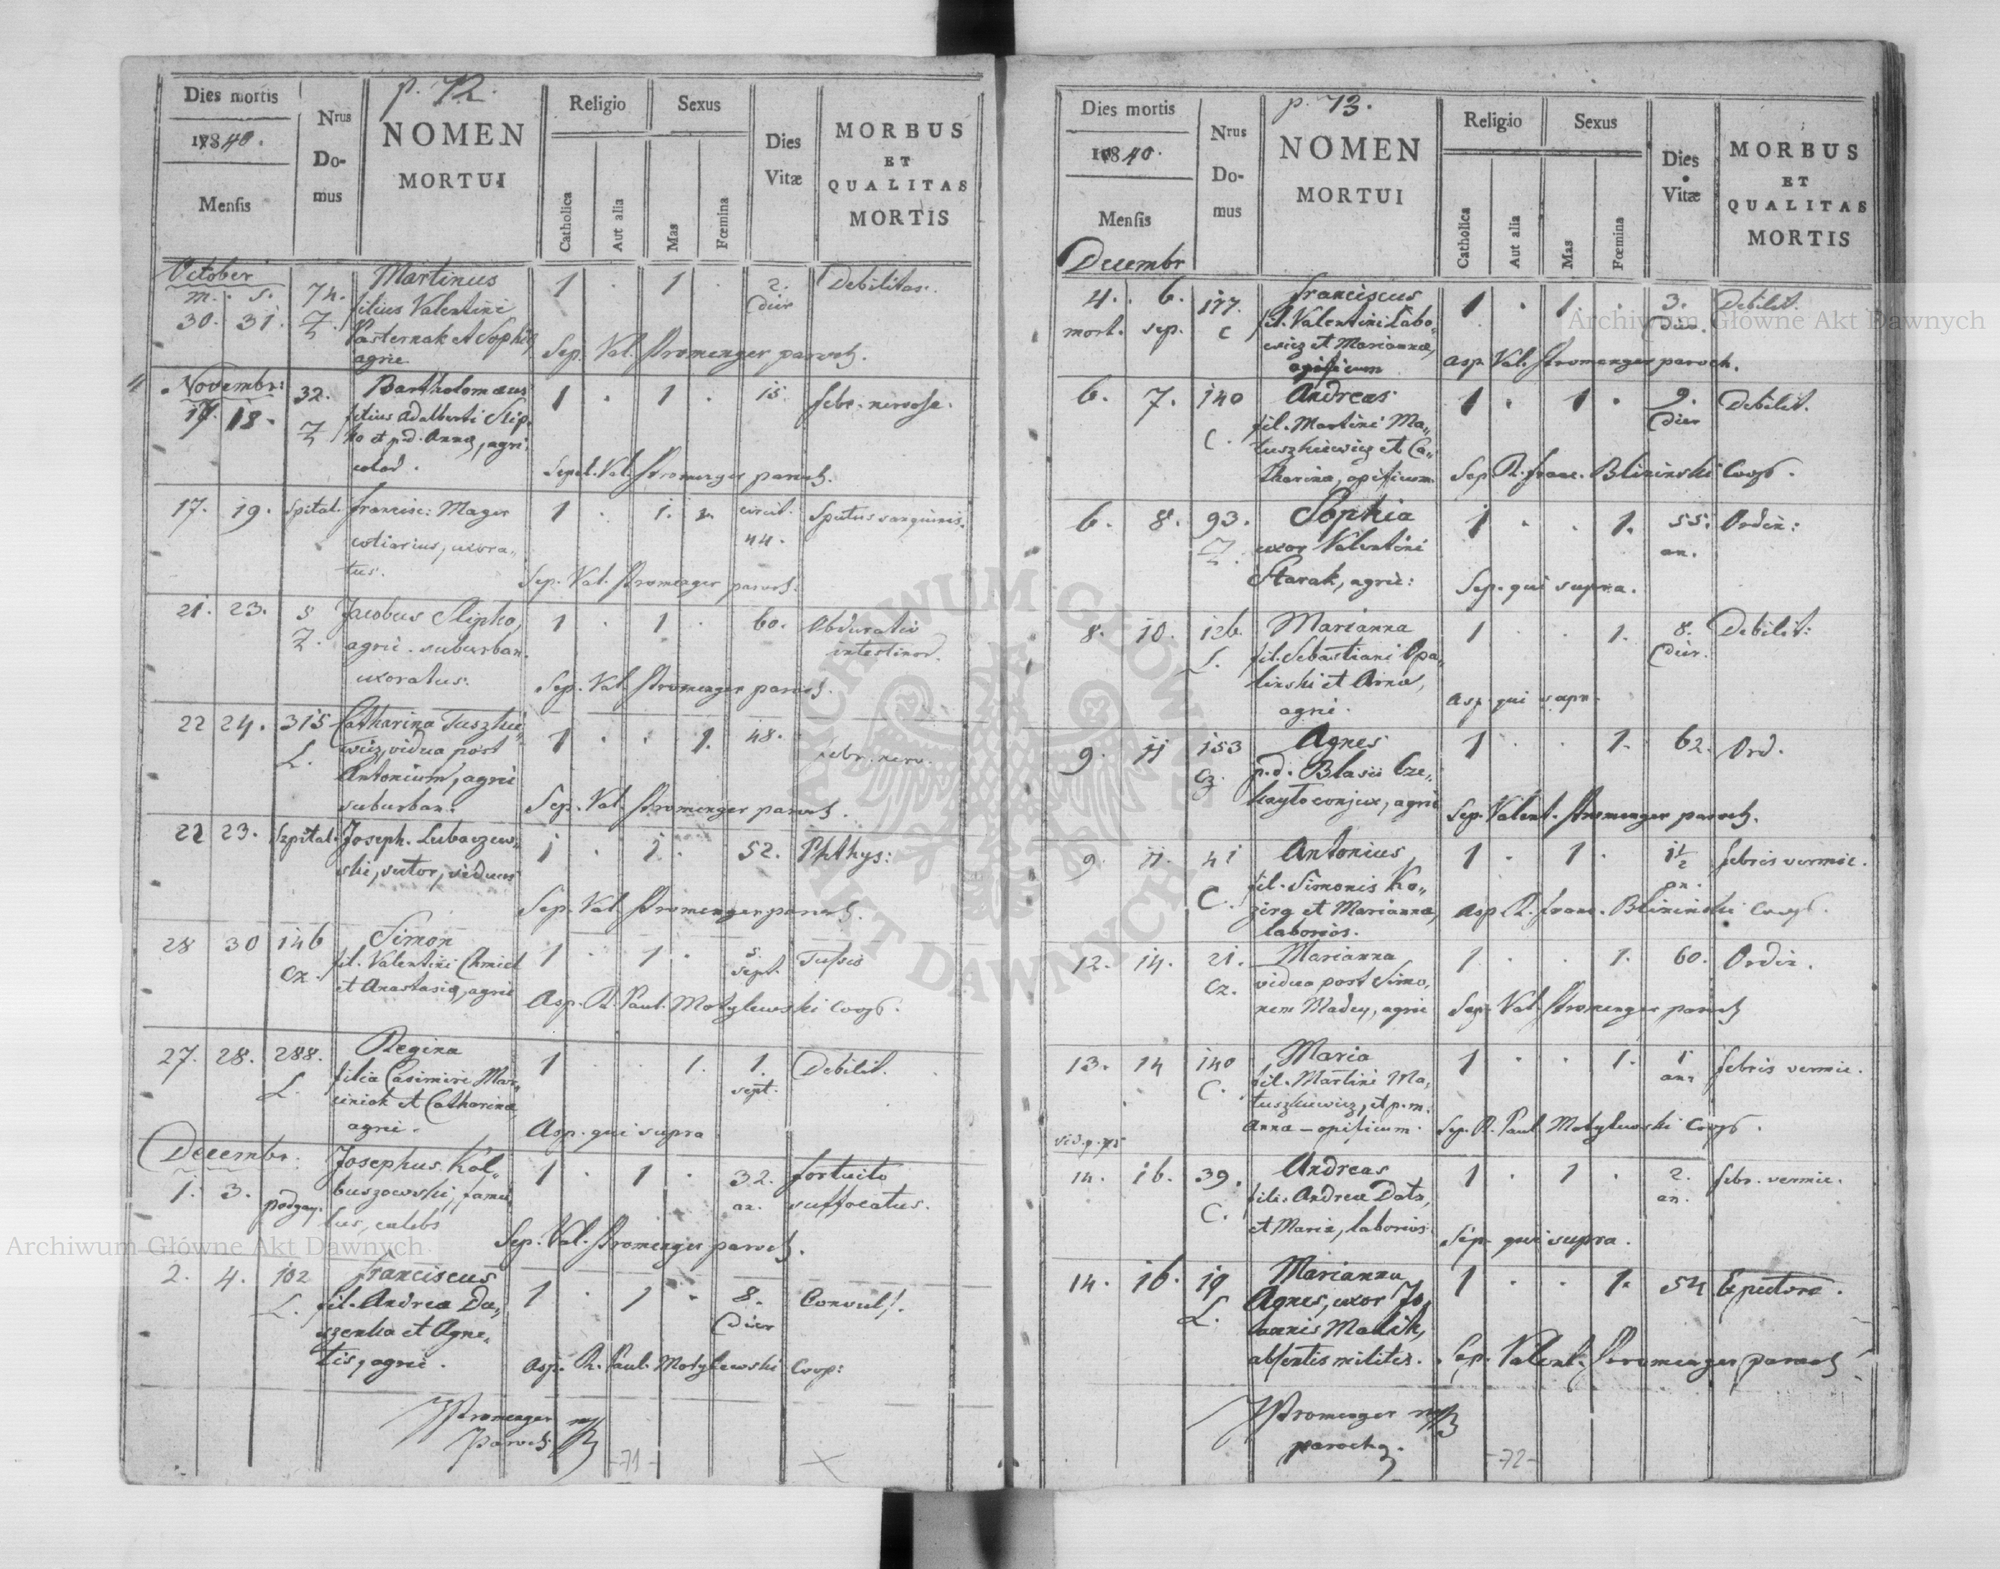 p. 72.
Dies mortis
1840.
Mensis
Nrus
Do-
mus
NOMEN
MORTUI
Religio
Catholica
Aut alia
Sexus
Mas
Fœmina
Dies
Vitæ
MORBUS
ET
QUALITAS
MORTIS
October
m. s.
30. 31.
74.
Z.
Martinus
filius Valentini
Pasternak et Sophia,
agric.
1 . 1 .
2.
dier
Debilitas.
Sep. Val. Stromenger paroch.
Novembr:
17. 18.
32.
Z
Bartholomæus
filius Adalberti Slip-
ko et p.d. Anna, agri-
colar.
1 . 1 .
15.
febr. nervosa.
Sepel. Val. Stromenger paroch.
17. 19. Spital.
Francisc: Mager
cotiarius, uxora-
tus.
1 . 1.
circit.
44.
Sputus sanguinis.
Sep. Val. Stromenger paroch.
21. 23. 5
Z.
Jacobus Slipko,
agric. suburban.
uxoratus.
1 . 1 .
60.
Obduratio
intestinor.
Sep. Val. Stromenger paroch.
22 24. 315
L.
Catharina Tuszkie-
wicz, vidua post
Antonium, agric
suburban:
1 . . 1.
48.
febr. nerv.
Sep. Val. Stromenger paroch.
22 23. Szpital.
Joseph. Lubaczew-
ski, sutor, viduus
1 . 1 .
52.
Phthys:
Sep. Val. Stromenger paroch.
28 30 146
Cz.
Simon
fil. Valentini Chmiel
et Anastasia, agric
1 . 1 .
5.
sept.
Tussis
Asp. R. Paul. Motylewski Coop.
27. 28. 288.
L.
Regina
filia Casimiri Mar-
ciniak et Catharina,
agric.
1 . . 1.
1.
sept.
Debilit.
Asp. qui supra
Decembr:
1. 3.
podgay.
Josephus Kol-
buszowski, famu-
lus, cælebs
1 . 1 .
32.
an.
fortuito
suffocatus.
Sep. Val. Stromenger paroch.
2. 4. 102
L.
Franciscus
fil. Andrea Da-
szenka et Agne-
tis, agric.
1 . 1 .
8.
dier
Convuls.
Asp. R. Paul. Motylewski Coop:
VStromenger mp
Paroch.
-71-
p. 73.
Dies mortis
1840.
Mensis
Nrus
Do-
mus
NOMEN
MORTUI
Religio
Catholica
Aut alia
Sexus
Mas
Fœmina
Dies
Vitæ
MORBUS
ET
QUALITAS
MORTIS
Decembr
4. 6.
mort. sep.
177.
C
Franciscus
fil. Valentini Cabo-
wicz et Marianna,
opificum
1 . 1 .
3.
dier.
Debilit.
Asp. Val. Stromenger paroch.
6. 7. 140
C.
Andreas
fil. Martini Ma-
tuszkiewicz et Ca-
tharina, opificum.
1 . 1 .
9.
dier
Debilit.
Sep. R. Franc. Blizinski Coop.
6. 8. 93.
Z.
Sophia
uxor Valentini
Starak, agric:
1 . . 1.
55.
an.
Ordin:
Sep. qui supra.
8. 10. 126.
L.
Marianna
fil. Sebastiani Opa-
linski et Anna,
agric.
1 . . 1.
8.
dier.
Debilit:
Asp. qui supr.
9. 11 153
Cz
Agnes
p.d. Blasii Cze-
kayto conjux, agric
1 . . 1.
62.
Ord.
Sep. Valent. Stromenger paroch.
9. 11. 41
C.
Antonius,
fil. Simonis Ko-
zirg et Marianna,
laborios.
1 . 1 .
1½
an.
febris vermic.
Asp. R. Franc. Blizinski Coop.
12. 14. 21.
Cz.
Marianna
vidua post Simo-
nem Madey, agric
1 . . 1.
60.
Ordin.
Sep. Val. Stromenger paroch
13. 14 140
C.
Maria
fil. Martini Ma-
tuszkiewicz, et p.m.
Anna - opificum.
1 . . 1.
1
an.
febris vermic.
Sep. R. Paul Motylewski Coop.
vid. p. 75
14. 16. 39.
C.
Andreas
filius Andrea Data,
et Maria, laborios.
1 . 1 .
2.
an.
febr. vermic.
Sep. qui supra.
14. 16. 19
L.
Marianna
Agnes, uxor Jo-
hannis Malik,
absentis militis.
1 . . 1.
54
Ex putore.
Sep. Valent. Stromenger paroch
VStromenger mp
parochg.
-72-
Archiwum Główne Akt Dawnych
Archiwum Główne Akt Dawnych
ARCHIWUM GŁÓWNE AKT DAWNYCH